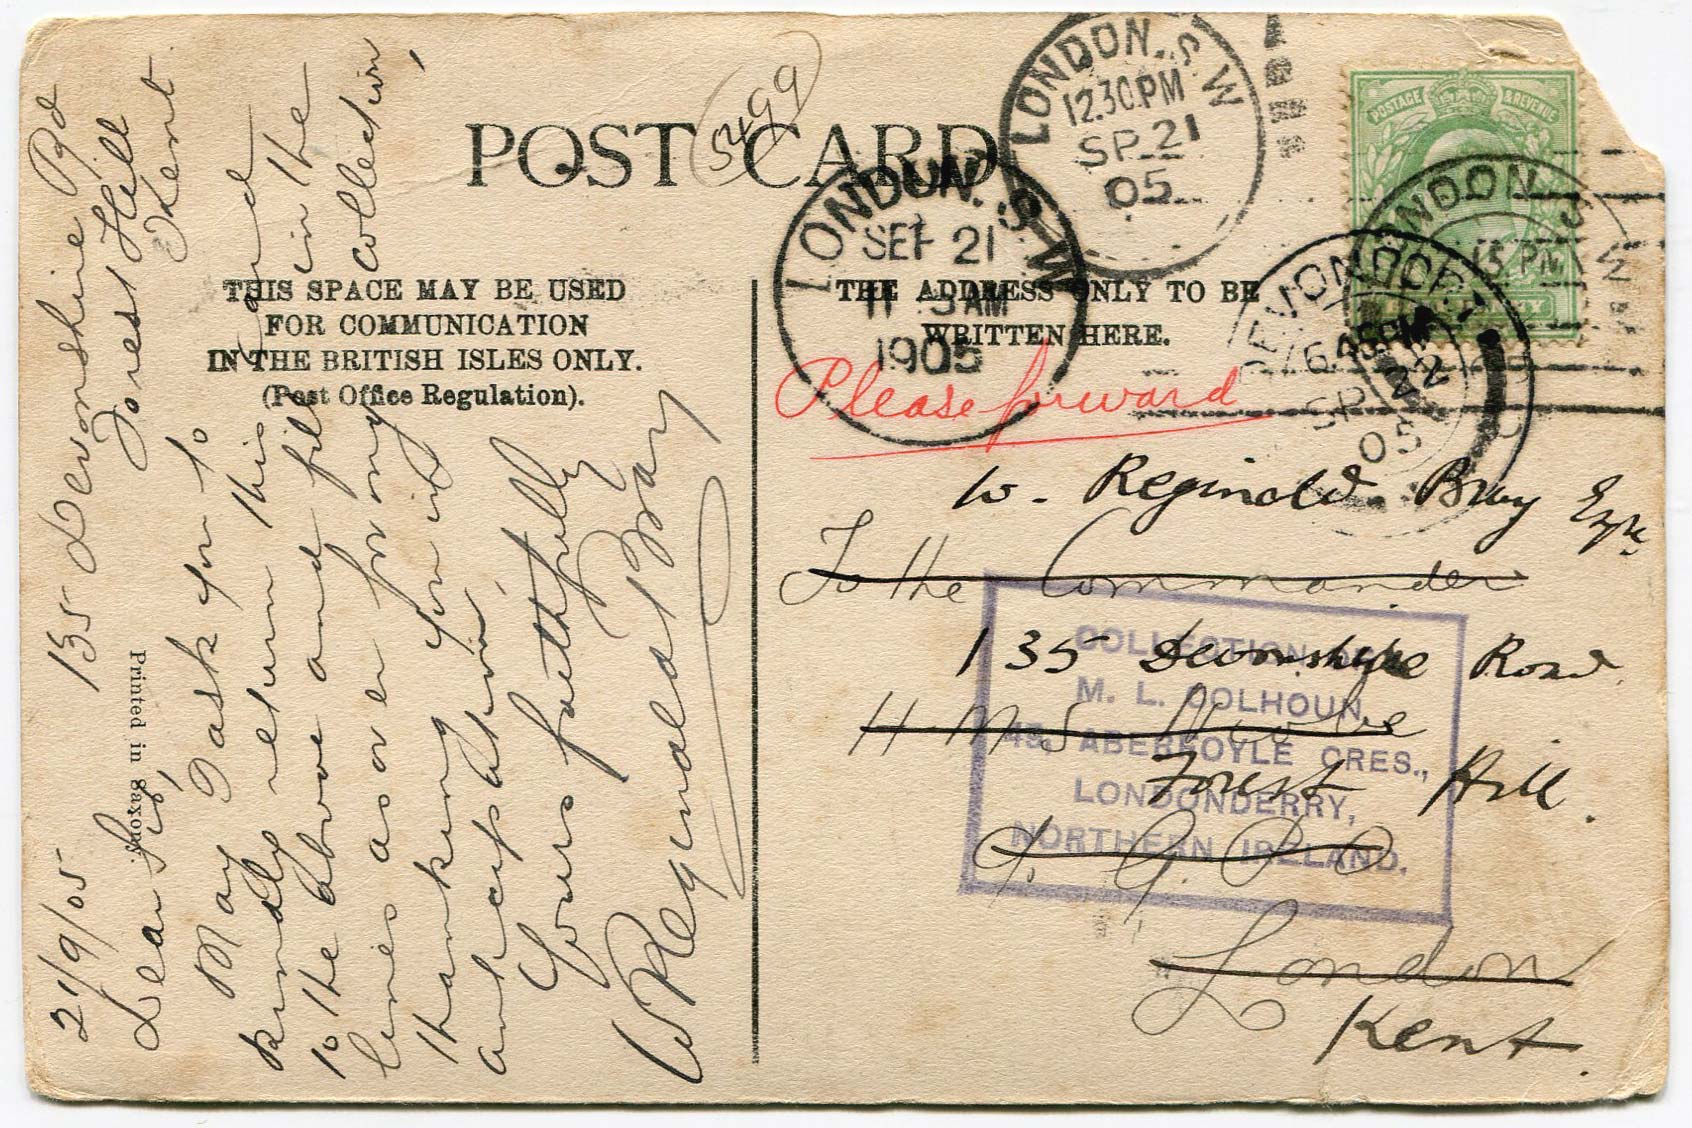 POST CARD
5499
THIS SPACE MAY BE USED
FOR COMMUNICATION
IN THE BRITISH ISLES ONLY.
(Post Office Regulation).
THE ADDRESS ONLY TO BE
WRITTEN HERE.
Printed in Saxony.
135 Devonshire Rd
Forest Hill
Kent.
21/9/05
Dear Sir,
May I ask you to
kindly return this card
to the above and fill in the
lines as over for my collection,
thanking you in
anticipation,
Yours faithfully
W Reginald Bray
Please forward
W. Reginald Bray Esqr.
To the Commander
135 Devonshire Road
H M S
Forest Hill.
G. P. O
London
Kent.
LONDON. S.W
12.30PM
SP 21
05
LONDON. S.W
SEP 21
11 AM
1905
POSTAGE & REVENUE
LONDON S W
15 PM
DEVONPORT
6.45PM
SP 22
05
COLLECTION OF
M. L. COLHOUN
45, ABERFOYLE CRES.,
LONDONDERRY,
NORTHERN IRELAND.